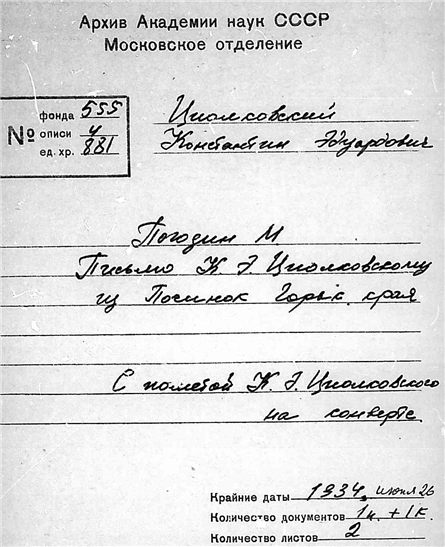 Архив Академии наук СССР
Московское отделение
№
фонда 555
описи 4
ед. хр. 881
Циолковский
Константин Эдуардович
Погодин М
Письмо К. Э. Циолковскому
из Починок Горьк. края
С пометой К. Э. Циолковского
на конверте.
Крайние даты 1934. июля 26
Количество документов 1п. + 1к.
Количество листов 2